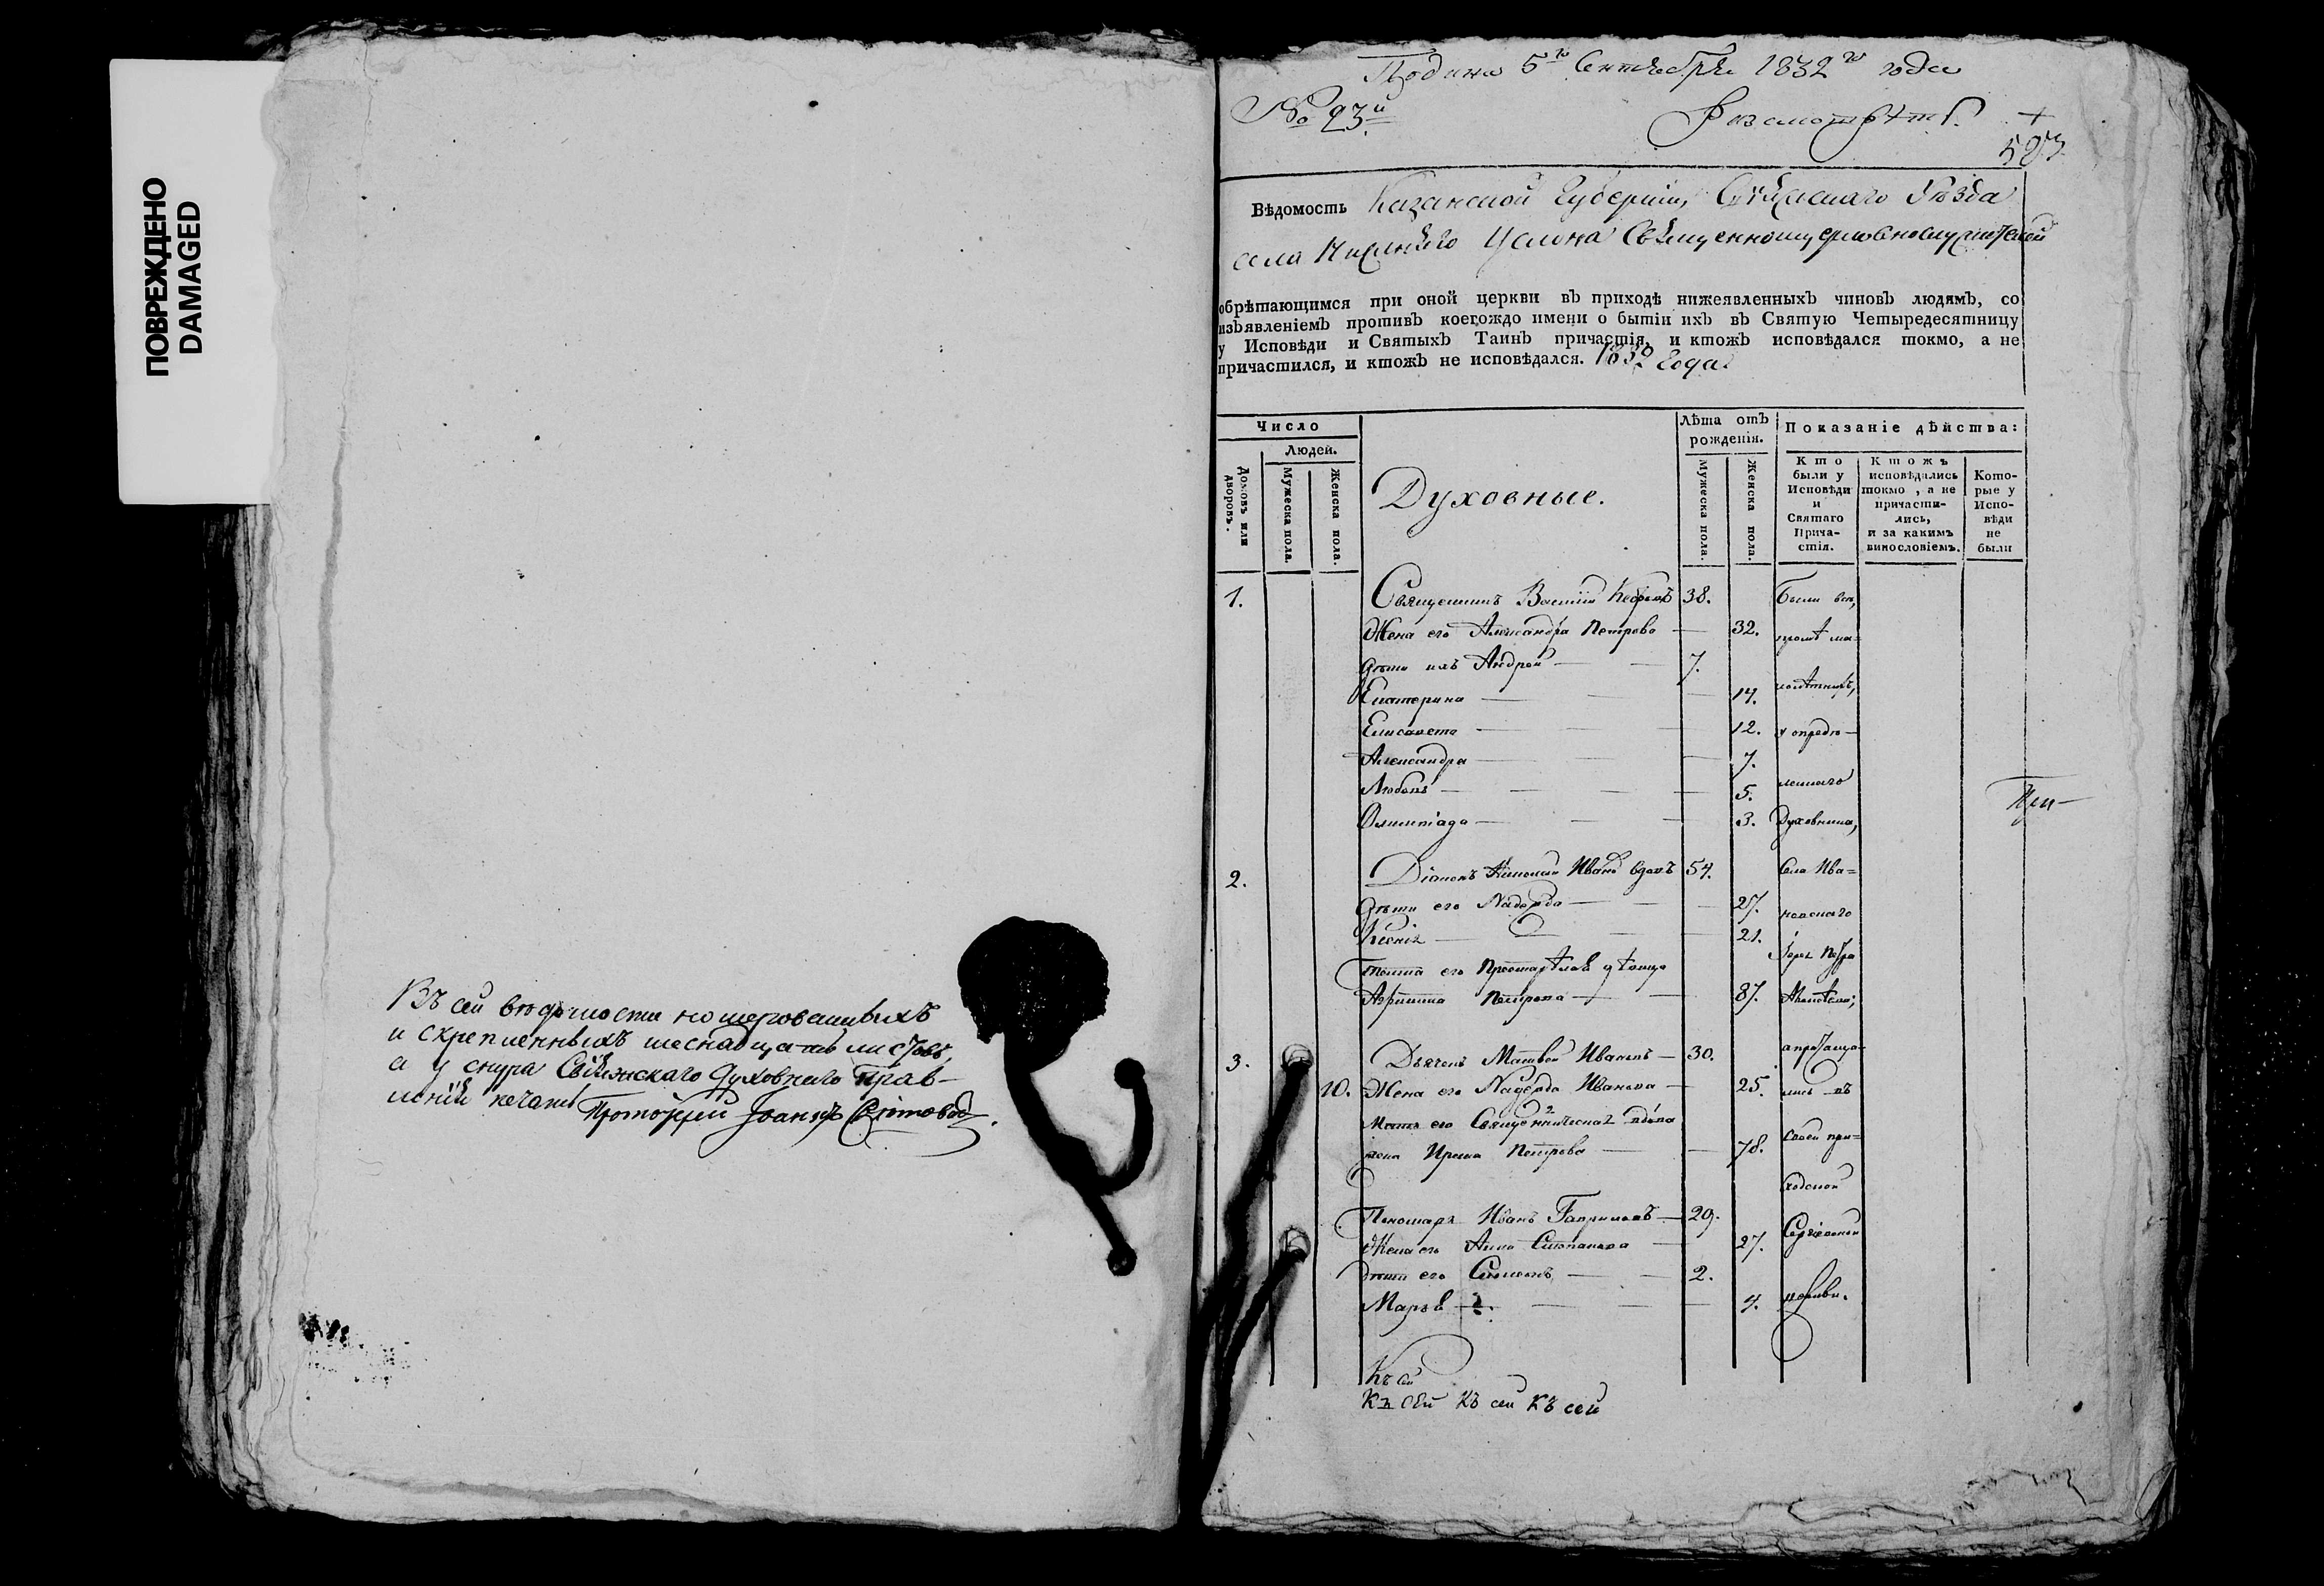 ПОВРЕЖДЕНО
DAMAGED
Въ сей вѣдомости номерованныхъ
и скрепленныхъ шеснадцать листовъ,
а у снура Свіяжскаго Духовнаго Прав-
ленія печать Протоіерей Іоаннъ
Подана 5го Сентября 1832го года
№ 23й
Вѣдомость Казанской Губерніи, Свіяжскаго Уѣзда
села Нижняго Услона
обрѣтающимся при оной церкви въ приходѣ нижеявленныхъ чиновъ людямъ, со
изъявленіемъ противъ коегождо имени о бытіи ихъ въ Святую Четыредесятницу
у Исповѣди и Святыхъ Таинъ причастія, и ктожъ исповѣдался токмо, а не
причастился, и ктожъ не исповѣдался. 1832 Года
Число
Людей.
Домовъ или дворовъ.
Мужеска пола.
Женска пола.
Духовные.
Лѣта отъ рожденія.
Мужеска пола.
Женска пола.
Показаніе дѣйства:
Кто были у Исповѣди и Святаго Прича-стія.
Ктожъ исповѣдались токмо, а не причасти-лись, и за какимъ винословіемъ.
Кото-рые у Испо-вѣди не были
1. Священникъ Василій 38. Были всѣ,
Жена его Александра Петрова — 32. кромѣ ма-
дѣти ихъ Андрей — 7.
Екатерина — 14. лолѣтнихъ,
Елисавета — 12. у опредѣ-
Александра — 7.
Любовь — 5. леннаго
Олимпіада — 3. Духовника,
2. Діаконъ Иванъ вдовъ 54. села Ива-
дѣти его Надежда — 27. новскаго
Ксенія — 21.
Іерея Петра
тетка его
Петрова — 87.
3. Дьячекъ Матвей Ивановъ — 30. а пріобща-
10. Жена его Надежда Иванова — 25. лись въ
Мать его Священническая вдова
жена Ирина Петрова — 78. своей при-
ходской
Пономарь Иванъ Гавриловъ — 29.
Жена его Анна Степанова — 27. Сергіевской
дѣти его Симеонъ — 2.
Марья — 4. церкви.
Къ сей
Къ сей Къ сей Къ сей